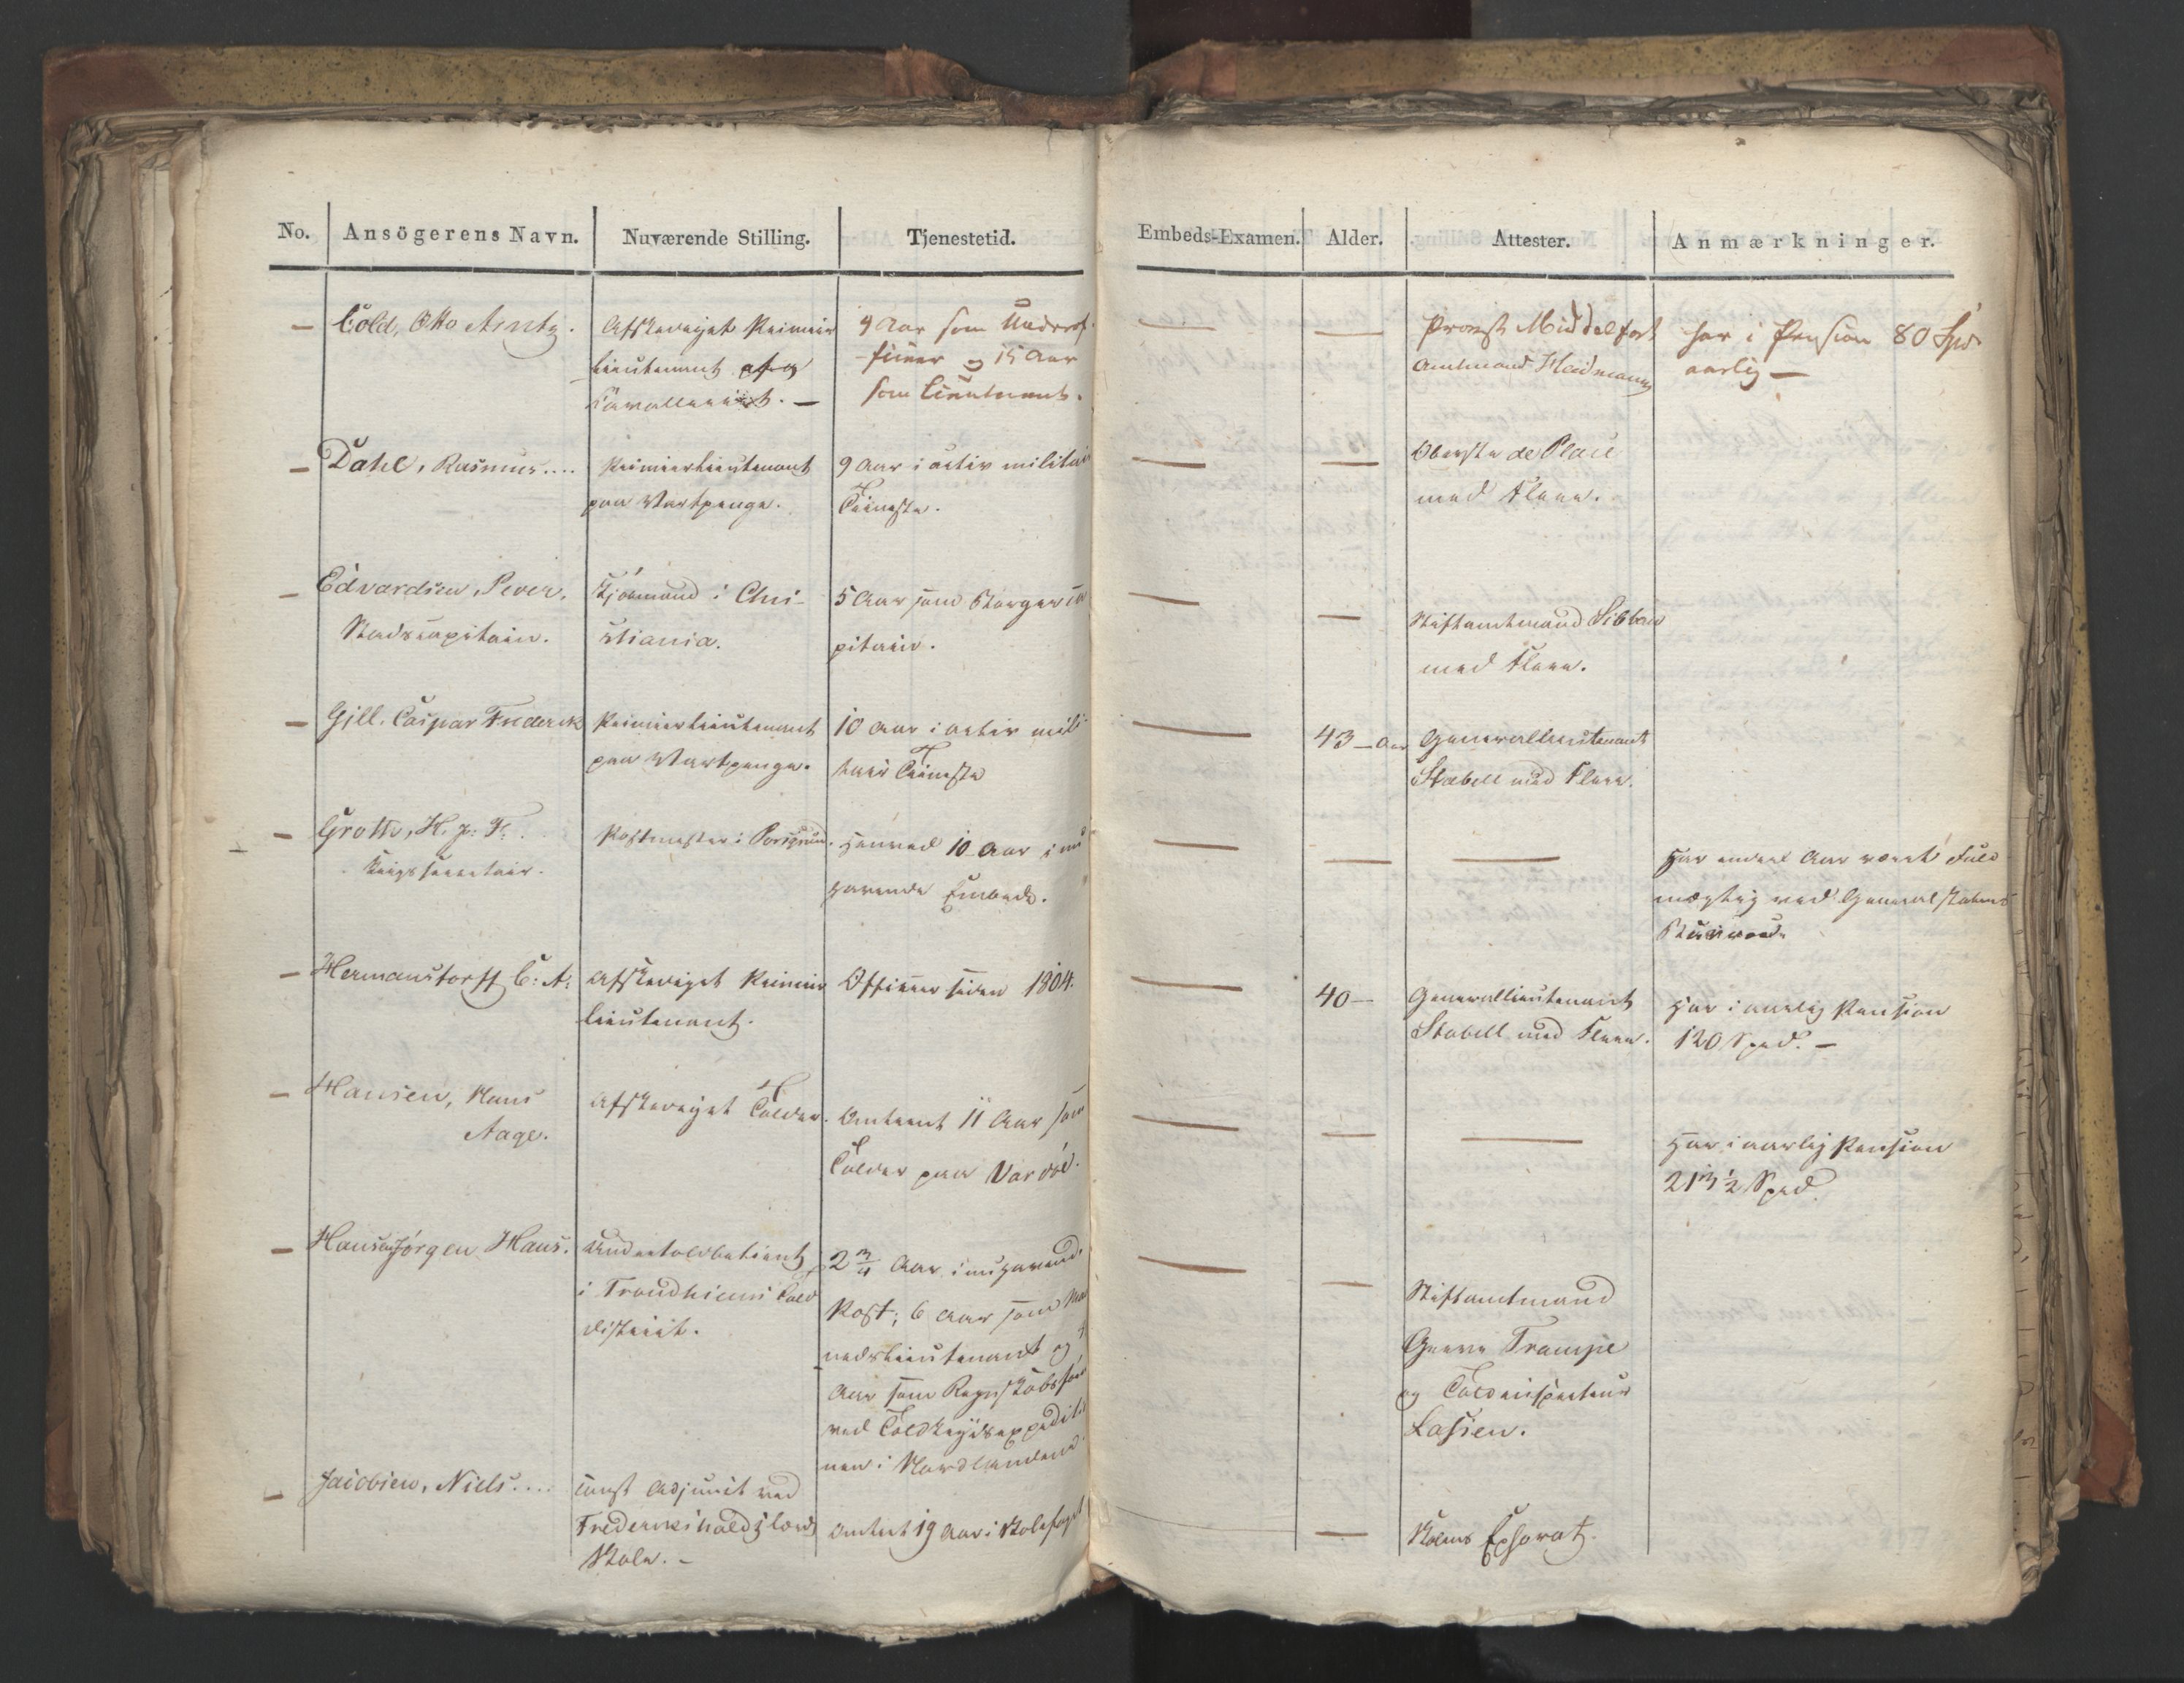 No. Ansögerens Navn. Nuværende Stilling. Tjenestetid. Embeds-Examen. Alder. Attester. Anmærkninger.
— Cold, Otto Arntz.
Afskediget Premier
Lieutenant
4 Aar som Underof-
ficier og 15 Aar
som Lieutenant.
—
—
Provst Middelfart
Amtmand Heidmann
har i Pension 80 Spd
aarlig —
— Dahl, Rasmus....
Premierlieutenant
paa Vartpenge.
9 Aar i activ militair
Tieneste.
—
—
Oberste de Place
med Flere.
— Edvardsen, Peder,
Stadscapitain.
i Chri-
stiania.
5 Aar som Borger ca
pitain.
—
—
Stiftamtmand Sibbern
med Flere.
— Gjll, Caspar Frederik
Premierlieutenant
paa Vartpenge.
10 Aar i activ mili-
tair Tieneste
—
43 — Aar
Generallieutenant
Stabell med Flere.
— Grotte, H. J. F.
Krigssecretair.
Postmester i Porsgrund.
henved 10 Aar i nu
havende Embede.
—
—
—
har endeel Aar været Fuld-
mægtig ved Generalstabens
Bureau
— Hermanstorff C: A:
Afskediget Premier
Lieutenant.
Officier siden 1804.
—
40 —
Generallieutenant
Stabell med Flere.
har i aarlig Pension
120 Spd. —
— Hansen, Hans
Aage.
Afskediget Tolder.
Omtrent 11 Aar som
Tolder paa Vardöe.
—
—
—
har i aarlig Pension
213 1/2 Spd.
— Hansen Jørgen Hans.
Undertoldbetient
i Trondhiems Told
district.
2 3/4 Aar i nuhavende
Post; 6 Aar som Ma
nedslieutenant og
Aar som Regnskabsfører
ved Toldkrydsexpeditio
nen i Nordlandene
—
—
Stiftamtmand
Greve Trampe
og Toldinspecteur
Lassen.
— Jacobsen, Niels....
const Adjunct ved
Frederikshalds lærde
Skole. —
Omtrent 19 Aar i Skolefaget
—
Skolens Ephorat.